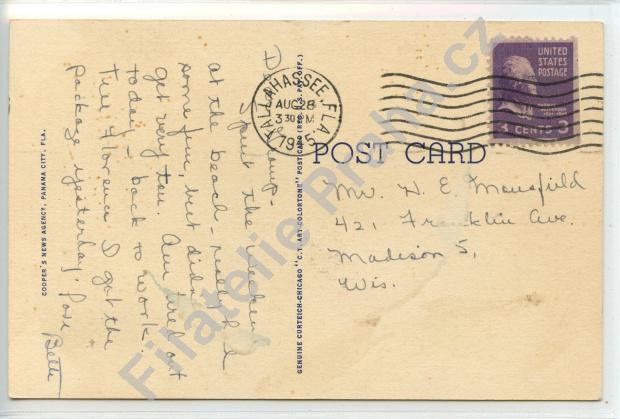 COOPER'S NEWS AGENCY, PANAMA CITY, FLA.
Spent the weekend
at the beach - really had
some fun, but didn't
get very tan. Am tired out
today - back to work.
Tell Florence I got the
package yesterday. Love
Bette
GENUINE CURTEICH-CHICAGO "C.T. ART-COLORTONE" POST CARD (REG. U.S. PAT. OFF.)
TALLAHASSEE, FLA.
AUG 28
3 30 PM
1945
UNITED
STATES
POSTAGE
3 CENTS 3
POST CARD
Mr. H. E. Mansfield
421 Franklin Ave.
Madison 5,
Wis.
Filatelie Praha.cz